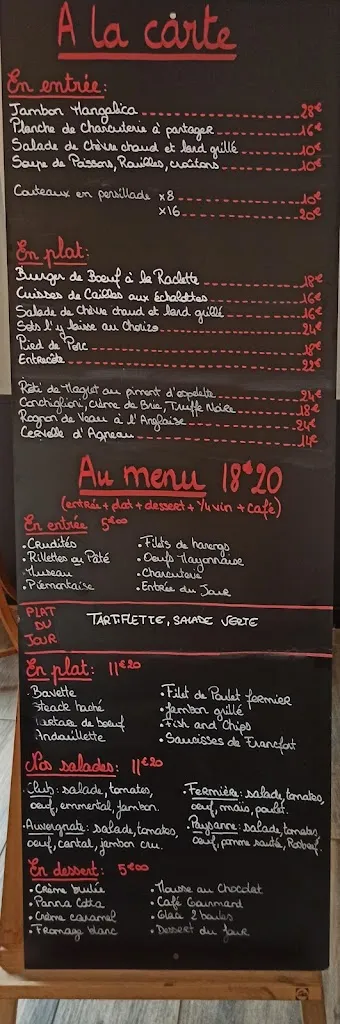 A la carte
En entrée:
Jambon Mangalica 28€
Planche de Charcuterie à partager 16€
Salade de Chèvre chaud et lard grillé 10€
Soupe de Poissons, Rouilles, croûtons 10€
Couteaux en persillade x8 10€
x16 20€
En plat:
Burger de Boeuf à la Raclette 18€
Cuisses de Cailles aux Echalottes 16€
Salade de Chèvre chaud et lard grillé 16€
Sots l'y laisse au Chorizo 24€
Pied de Porc 18€
Entrecôte 22€
Rôti de Magret au piment d'espelette 24€
Conchiglioni, Crème de Brie, Truffe Noire 18€
Rognon de Veau à l'Anglaise 24€
Cervelle d'Agneau 14€
Au menu 18€20
(entrée + plat + dessert + 1/4 vin + café)
En entrée 5€00
• Crudités • Filets de harengs
• Rillettes ou Pâté • Oeufs Mayonnaise
• Museau • Charcuterie
• Piémontaise • Entrée du Jour
PLAT
DU
JOUR
TARTIFLETTE, SALADE VERTE
En plat: 11€20
Bavette • Filet de Poulet fermier
Steack haché • Jambon grillé
Tartare de boeuf • Fish and Chips
Andouillette • Saucisses de Francfort
Nos salades: 11€20
• Club: salade, tomates, • Fermière: salade, tomates,
oeuf, emmental, jambon. oeuf, maïs, poulet.
• Auvergnate: salade, tomates, • Paysanne: salade, tomates,
oeuf, cantal, jambon cru. oeuf, pomme sauté, Rosbeef.
En dessert: 5€00
• Crème brulée • Mousse au Chocolat
• Panna Cotta • Café Gourmand
• Crème caramel • Glace 2 boules
• Fromage blanc • Dessert du Jour